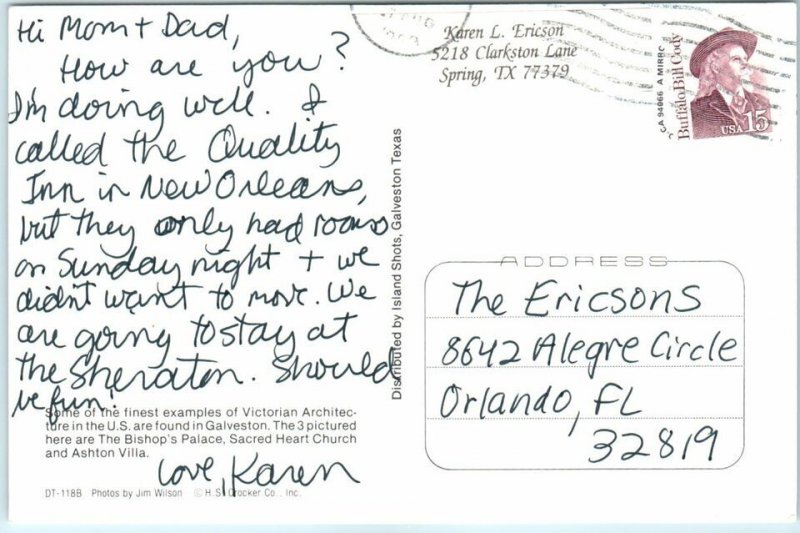 Hi Mom + Dad,
How are you?
I'm doing well. I
called the Quality
Inn in New Orleans,
but they only had rooms
on Sunday night + we
didn't want to move. We
are going to stay at
the Sheraton. Should
be fun!
Love, Karen
Some of the finest examples of Victorian Architec-
ture in the U.S. are found in Galveston. The 3 pictured
here are The Bishop's Palace, Sacred Heart Church
and Ashton Villa.
DT-118B Photos by Jim Wilson © H.S. Crocker Co., Inc.
Distributed by Island Shots, Galveston Texas
Karen L. Ericson
5218 Clarkston Lane
Spring, TX 77379
CA 94966 A MIRRO
Buffalo Bill Cody
USA 15
ADDRESS
The Ericsons
8642 Alegre Circle
Orlando, FL
32819